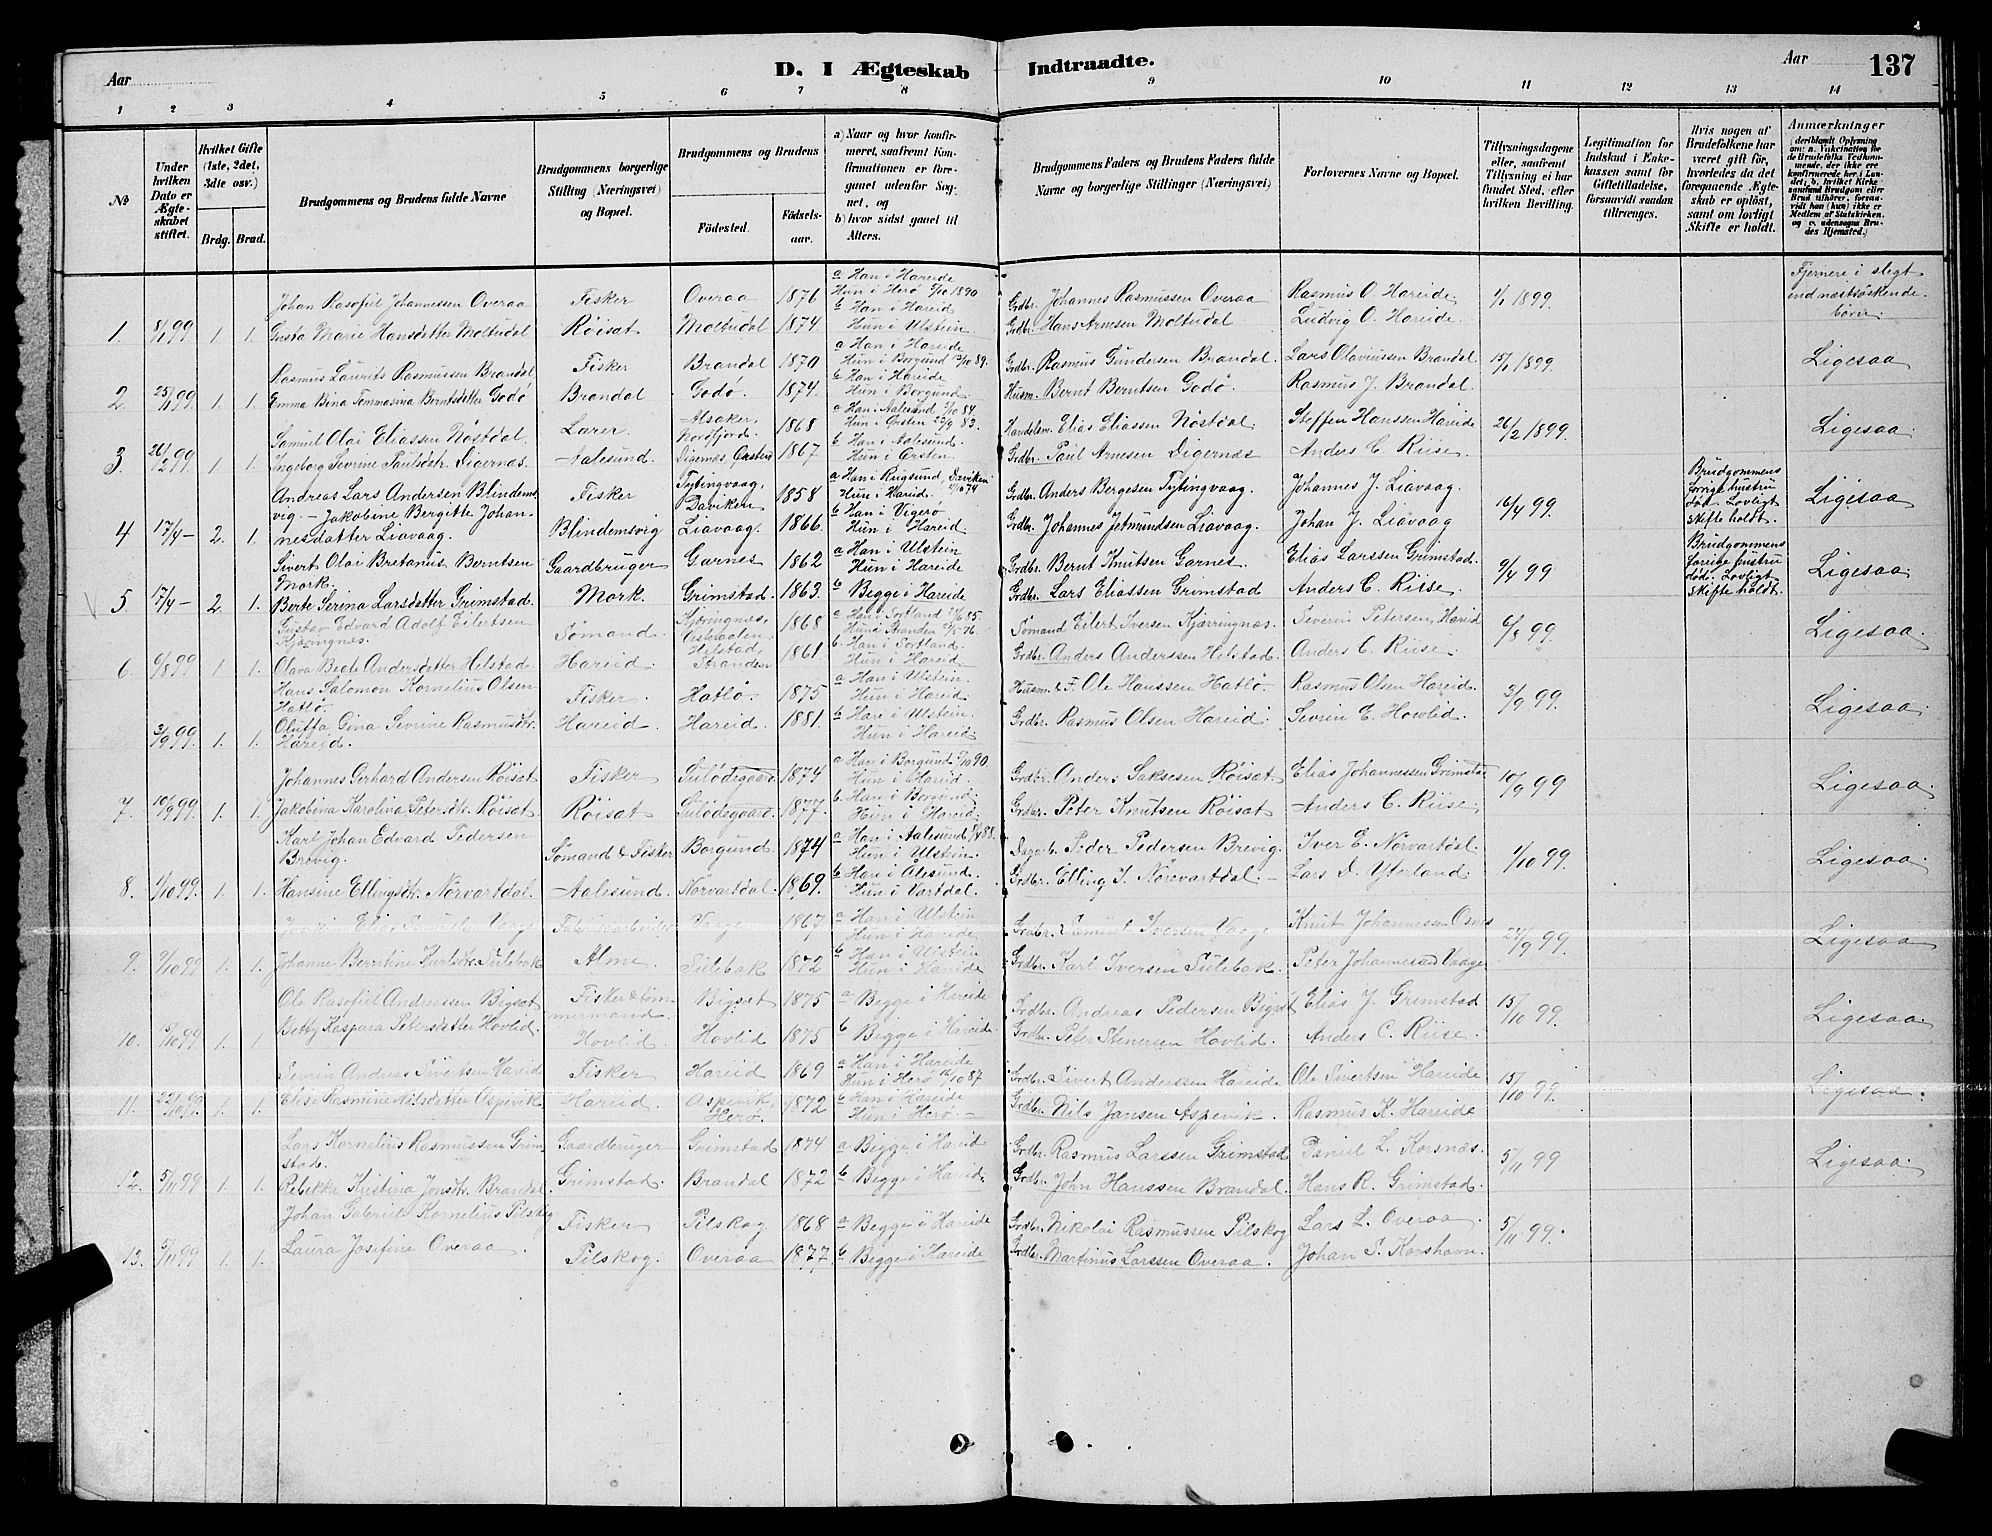 Aar
D. I Ægteskab
Indtraadte.
Aar
137
1 2 3 4 5 6 7 8 9 10 11 12 13 14
No
Under hvilken Dato er Ægteskabet stiftet.
Hvilket Gifte (1ste, 2det, 3die osv.)
Brdg. Brud.
Brudgommens og Brudens fulde Navne
Brudgommens borgerlige Stilling (Næringsvei) og Bopæl.
Brudgommens og Brudens
Födested.
Födselsaar.
a) Naar og hvor konfirmeret, saafremt Konfirmationen er foregaaet udenfor Sognet, og
b) hvor sidst gaaet til Alters.
Brudgommens Faders og Brudens Faders fulde Navne og borgerlige Stillinger (Næringsvei)
Forlovernes Navne og Bopæl.
Tillysningsdagene eller, saafremt Tillysning ei har fundet Sted, efter hvilken Bevilling.
Legitimation for Indskud i Enkekassen samt for Giftetilladelse, forsaavidt saadan tiltrænges.
Hvis nogen af Brudefolkene har været gift før, hvorledes da det foregaaende Ægteskab er oplöst, samt om lovligt Skifte er holdt.
Anmærkninger
deriblandt Oplysning om: a. Vakcination for de Brudefolks Vedkommende, der ikke ere konfirmerede her i Landet; b. hvilket Kirkesamfund Brudgom eller Brud tilhörer, forsaavidt han (hun) ikke er Medlem af Statskirken, og c. udensogns Brudes Hjemsted.)
1. 8/1 99 1. 1. Johan Rasofiel Johannessen Overaa Fisker Overaa 1876 a Han i Hareide Hun i Herø 5/10 1890 Grdbr. Johannes Rasmussen Overaa Rasmus O. Hareide 1/1 1899. Fjernere i slegt end næstsøskendebørn.
Gusta Marie Hansdatter Moltudal Røisat Moltudal 1874. b Han i Hareid Hun i Ulstein Grdbr. Hans Arnesen Moltudal Ludvig O. Hareide.
2. 25/1 99 1. 1. Rasmus Laurits Rasmussen Brandal Fisker Brandal 1870 a Han i Hareide Hun i Borgund 13/10 89. Grdbr. Rasmus Gundersen Brandal. Lars Olaviussen Brandal 15/1 1899. Ligesaa
Emma Bina Tommasina Berntsdatter Godø Brandal Godø. 1874. b Han i Hareide Hun i Borgund Husm. Bernt Berntsen Godø. Rasmus J. Brandal.
3. 26/2 99. 1. 1. Samuel Olai Eliassen Nøstdal Lærer. Alsaker, Nordfjord. 1868 a Han i Aalesund 5/10 84. Hun i Ørsten 22/9 83. Handelsm. Elias Eliassen Nøstdal Steffen Hanssen Hareide 26/2 1899. Ligesaa.
Ingeborg Sevrine Paulsdtr. Digernæs Aalesund. Digernæs, Ørsten 1867 b Han i Aalesund. Hun i Ørsten. Grdbr. Paul Arnesen Digernæs Anders C. Riise.
4 17/4 – 2. 1. Andreas Lars Andersen Blindemsvig. – Jakobine Bergitte Johannesdatter Liavaag. Fisker Blindemsvig Tytingvaag, Daviken Liavaag. 1858 1866. a Han i Rugsund, Daviken 74 Hun i Hareid. b Han i Vigerø Hun i Hareid. Grdbr. Anders Bergesen Tytingvaag. Grdbr. Johannes Jetmundsen Liavaag. Johannes J. Liavaag. Johan J. Liavaag 16/4 99. Brudgommens forrige hustru død. Lovligt skifte holdt. Ligesaa
5. 17/4 – 2. 1. Sivert Olai Bretanus Berntsen Mork. Gaardbruger Garnes 1862 a Han i Ulstein Hun i Hareide Grdbr. Bernt Knutsen Garnes. Elias Larssen Grimstad 9/4 99 Brudgommens forrige hustru død. Lovligt skifte holdt. Ligesaa.
Berte Serina Larsdatter Grimstad. Mork. Grimstad. 1863. b Begge i Hareide Grdbr. Lars Eliassen Grimstad Anders C. Riise.
6. 6/8 99 1. 1. Gustav Edvard Adolf Eilertsen Kjøringnes. Sømand. Kjøringnes, Vesteraalen 1868 a Han i Sortland 85. Hun i Stranden 76. Sømand Eilert Iversen Kjærringnæs. Severin Petersen, Hareid 6/8 99. Ligesaa.
Olava Beate Andersdatter Helstad. Hareid Helstad, Stranden 1861. b. Han i Sortland. Hun i Hareid. Grdbr. Anders Anderssen Helstad. Anders C. Riise.
3/9 99. 1. 1. Hans Salomon Kornelius Olsen Hatlø. Fisker. Hatlø. 1875 a Han i Ulstein. Hun i Hareid. Husm. & F. Ole Hanssen Hatlø. Rasmus Olsen Hareid. 3/9 99. Ligesaa.
Oluffa Gina Sevrine Rasmusdtr. Hareid. Hareid. Hareid. 1881. b Han i Ulstein. Hun i Hareid. Grdbr. Rasmus Olsen Hareid. Sevrin E. Hovlid.
7. 10/9 99. 1. 1. Johannes Gerhard Andersen Røisat Fisker Sulödegaard 1874 a Han i Borgund 5/10 90. Hun i Hareid. Grdbr. Anders Saksesen Røisat. Elias Johannessen Grimstad 10/9 99 Ligesaa.
Jakobina Karolina Petersdtr. Røisat. Røisat Sulödegaard. 1877. b. Han i Borgund. Hun i Hareid. Grdbr. Peter Knutsen Røisat Anders C. Riise
8. 1/10 99. 1. 1. Karl Johan Edvard Pedersen Brevig. Sømand & Fisker Borgund. 1874 a Han i Aalesund 8/4 88. Hun i Ulstein. Dagarb. Peder Pedersen Brevig. Iver E. Norvartdal. 1/10 99. Ligesaa.
Hansine Ellingsdtr. Nørvartdal. Aalesund. Nørvartdal. 1869. b Han i Ålesund. Hun i Vartdal. Grdbr. Elling I. Nørevartdal. – Lars D. Ytorland.
9. 1/10 99 1. 1. Elias Vaage Fabrikarbeider Vaage 1867 a Han i Ulstein Hun i Hareide Grdbr. Samuel Iversen Vaage Knut Johannessen Osnes 24/9 99. Ligesaa
Johanne Berntine Karlsdtr. Sulebak Alme Sulebak 1872 b Han i Ulstein Hun i Hareide Grdbr. Karl Iversen Sulebak. Peter Johannessen Vaage
10. 15/10 99 1. 1 Ole Rasofiel Andreassen Bigsæt Fisker & tømmermand. Bigsæt 1875 a Begge i Hareide Grdbr. Andreas Pedersen Bigsæt Elias J. Grimstad 15/10 99. Ligesaa.
Betty Kaspara Petersdatter Hovlid. Hovlid. Hovlid 1875 b Begge i Hareide. Grdbr. Peter Stenersen Hovlid. Anders C. Riise.
11. 22/10 99. 1. 1. Sevrin Andreas Sivertsen Hareid Fisker Hareid 1869 a Han i Hareide Hun i Herø 16/10 87 Grdbr. Sivert Anderssen Hareide Ole Sivertsen Hareide 15/10 99. Ligesaa.
Elise Rasmine Nilsdatter Aspevik Hareid. Aspevik, Herø. 1872 b Han i Hareide Hun i Herø – Grdbr. Nils Jansen Aspevik. Rasmus K. Hareide
12. 5/11 99 1. 1. Lars Kornelius Rasmussen Grimstad. Gaardbruger Grimstad 1874 a Begge i Hareid Grdbr. Rasmus Larssen Grimstad Daniel L. Korsnæs. 5/11 99 Ligesaa.
Rebekka Kristina Jonsdtr. Brandal. Grimstad. Brandal 1872 b Begge i Hareid. Grdbr. John Hanssen Brandal. Hans R. Grimstad.
13. 5/11 99 1. 1. Johan Gabriel Kornelius Pilskog Fisker Pilskog 1868 a Begge i Hareide Grdbr. Nikolai Rasmussen Pilskog Lars L. Overaa. 5/11 99.
Laura Josefine Overaa. Pilskog. Overaa 1877. b Begge i Hareide Grdbr. Martinus Larssen Overaa. Johan S. Korshavn.